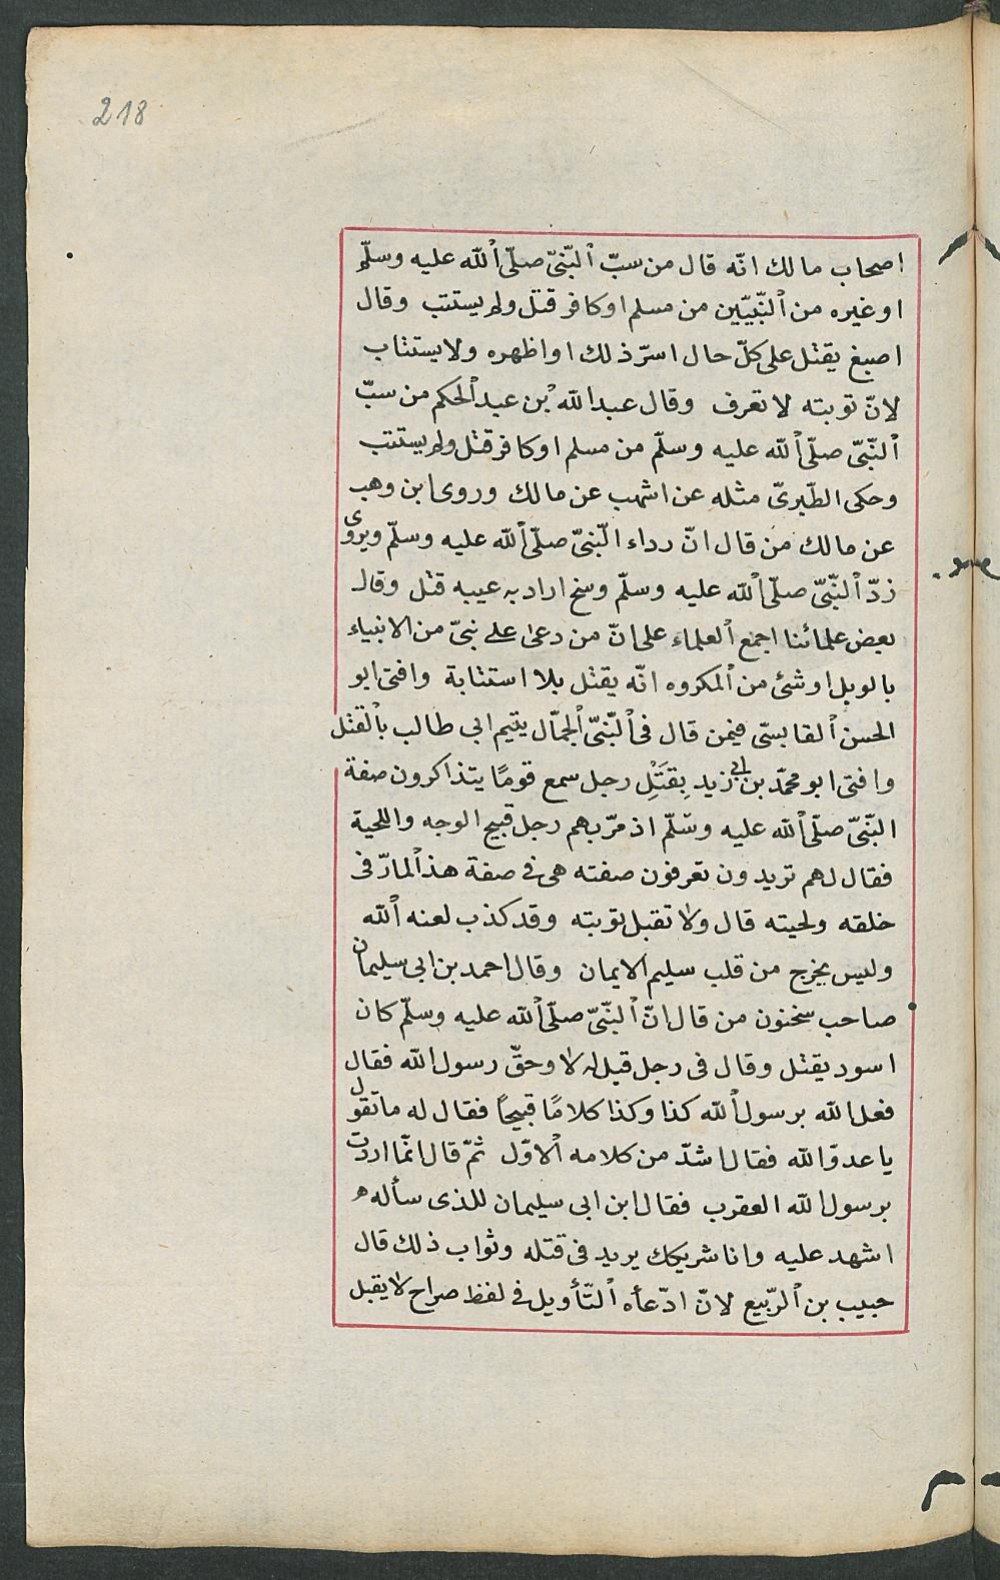 218
اصحاب مالك انّه قال من سبّ النّبىّ صلّى الله عليه وسلّم
او غيره من النّبيّين من مسلم او كافر قتل ولم يستتب وقال
اصبغ يقتل على كلّ حال اسرّ ذلك او اظهره ولا يستتاب
لانّ توبته لا تعرف وقال عبد الله بن عبد الحكم من سبّ
النّبىّ صلّى الله عليه وسلّم من مسلم او كافر قتل ولم يستتب
وحكى الطّبرىّ مثله عن اشهب عن مالك وروى ابن وهب
عن مالك من قال انّ رداء النّبىّ صلّى الله عليه وسلّم ويروى
زرّ النّبىّ صلّى الله عليه وسلّم وسخ اراد به عيبه قتل وقال
بعض علمائنا اجمع العلماء على انّ من دعى على نبىّ من الانبياء
بالويل او شئ من المكروه انّه يقتل بلا استتابة وافتى ابو
الحسن القابسىّ فيمن قال فى النّبىّ الجمّال يتيم ابى طالب بالقتل
وافتى ابو محمّد بن ابى زيد بِقتَلِ رجل سمع قومًا يتذاكرون صفة
النّبىّ صلّى الله عليه وسّلّم اذ مرّ بهم رجل قبيح الوجه واللحية
فقال لهم تريدون تعرفون صفته هى فى صفة هذا المارّ فى
خلقه ولحيته قال ولا تقبل توبته وقد كذب لعنه الله
وليس يخرج من قلب سليم الايمان وقال احمد بن ابى سليمان
صاحب سحنون من قال انّ النّبىّ صلّى الله عليه وسلّم كان
اسود يقتل وقال فى رجل قيل له لا وحقّ رسول الله فقال
فعل الله برسول الله كذا وكذا كلامًا قبيحًا فقال له ما تقول
يا عدوّ الله فقال اشدّ من كلامه الاوّل ثمّ قال انّما اردت
برسول الله العقرب فقال ابن ابى سليمان للذى سأله
اشهد عليه وانا شريكك يريد فى قتله وثواب ذلك قال
حبيب بن الرّبيع لانّ ادّعأه التّأويل فى لفظ صراح لا يقبل